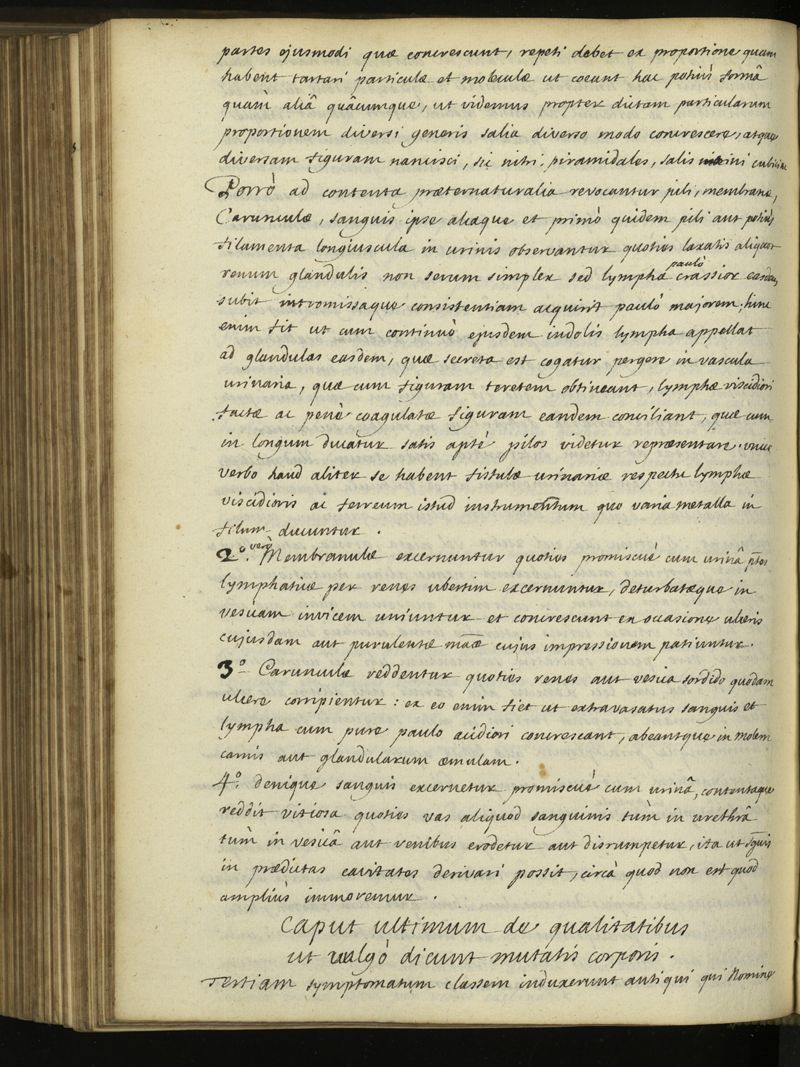 partes ejusmodi quæ concrescunt, repeti debet ex proportione quam
habent tartari particulæ et moleculæ ut coeant hac potius formâ
quàm aliâ quâcumque, ut videmus propter dictam particularum
proportionem diversi generis salia diverso modo concrescere, atque
diversam figuram nancisci, sic nitri, piramidales, salis marini cubicæ
Porrò ad contenta præternaturalia revocantur pili, membranæ,
Carunculæ, sanguis ipse aliaque et primò quidem pili aut potius
filamenta longiuscula in urinis observantur quoties laxatis aliquot
renum glandulis non serum simplex sed lympha paulò crassior easdem
subit intromissaque consistentiam acquirit pauló majorem, hinc
enim fit ut cum continuò ejusdem indolis lympha appellat
ad glandulas easdem, quæ secreta est cogatur pergere in vascula
urinaria, quæ cum figuram teretem obtineant, lymphæ viscidiori
factæ ac penè coagulatæ figuram eandem conciliant, quæ cum
in longum ducatur satis aptè pilos videtur repræsentare. uno
verbo haud aliter se habent fistulæ urinariæ respectu lymphæ
viscidioris ac ferreum istud instrumentum quo varia metalla in
filum ducuntur.
2º. verò Membranulæ excernuntur quoties promiscuè cum urinâ ptes
lymphaticæ per renes ubertim excernuntur, deturbatæque in
vesicam invicem uniuntur et concrescunt ex occasione ulceris
cujusdam aut purulentæ maæ cujus impressionem patiuntur.
3º Carunculæ redduntur quoties renes aut vesica sordido quodam
ulcere corripientur: ex eo enim fiet ut extravasatus sanguis et
lympha cum pure paulo acidiori concrescant, abeantque in molem
carnis aut glandularum æmulam.
4º. denique sanguis excernetur promiscuè cum urinâ, contentaque
reddit vitiosa quoties vas aliquod sanguinis tùm in urethrâ
tùm in vesicâ aut renibus erodetur aut disrumpetur, ita ut sguis
in prædictas cavitates derivari possit, circà quod non est quod
ampliùs immoremur.
Caput ultimum de qualitatibus
ut vulgò dicunt mutatis corporis.
Tertiam symptomatum classem induxerunt antiqui qui Nomine